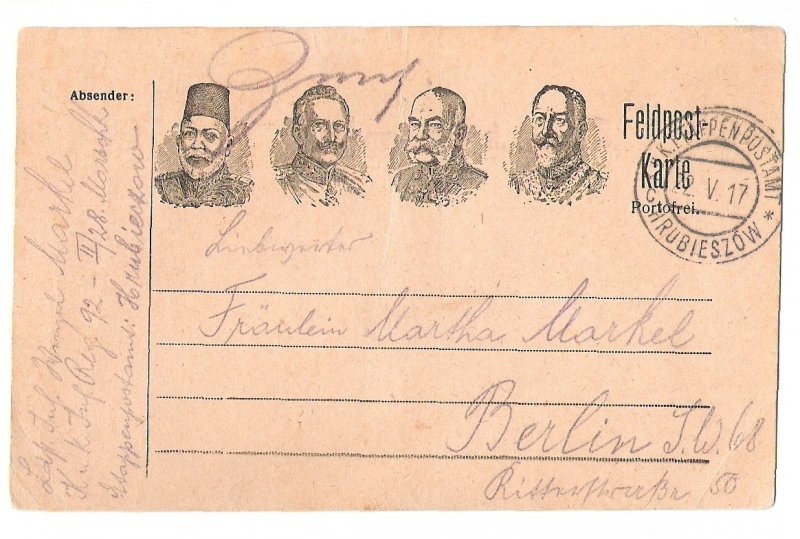 Absender:
Feldpost-
Karte
Portofrei.
K.u.K. ETAPPENPOSTAMT *
2. V. 17
HRUBIESZÓW
Fräulein Martha Markel
Berlin S.W. 68
Ritterstraße 50
Inf. Markel
K. u. k. Inf. Reg. 92 - II/28. Marschk
Etappenpostamt: Hrubieszow